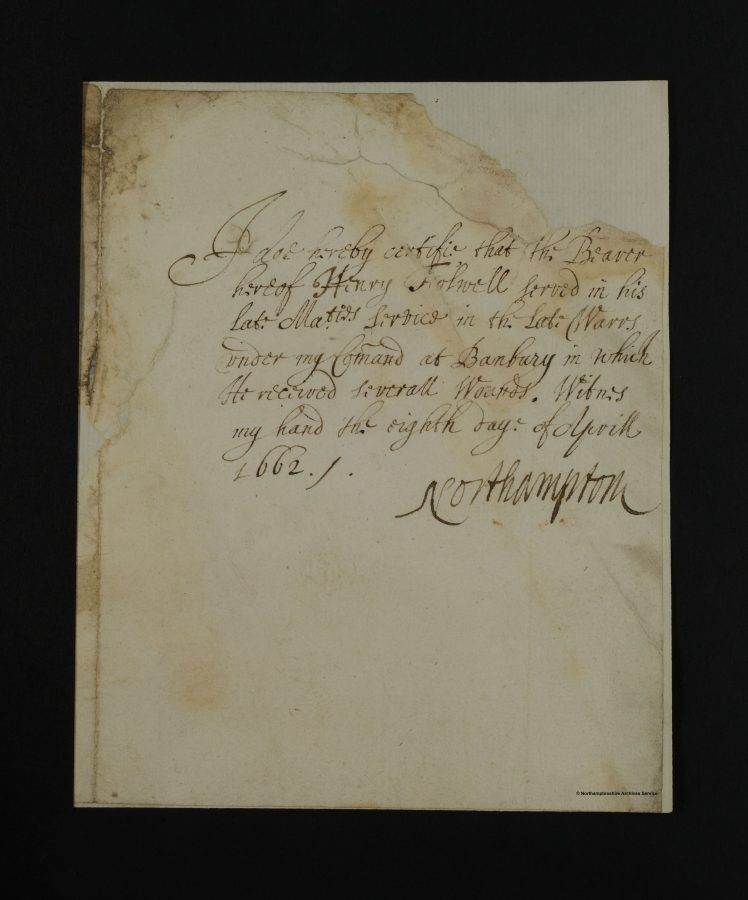 I doe hereby certifie that the Bearer
hereof Henry Folwell served in his
late Ma:ties service in the late Warrs
vnder my Comand at Banbury in which
He received severall Wounds. Witnes
my hand the eighth daye of Aprill
1662./.
Northampton
© Northamptonshire Archives Service